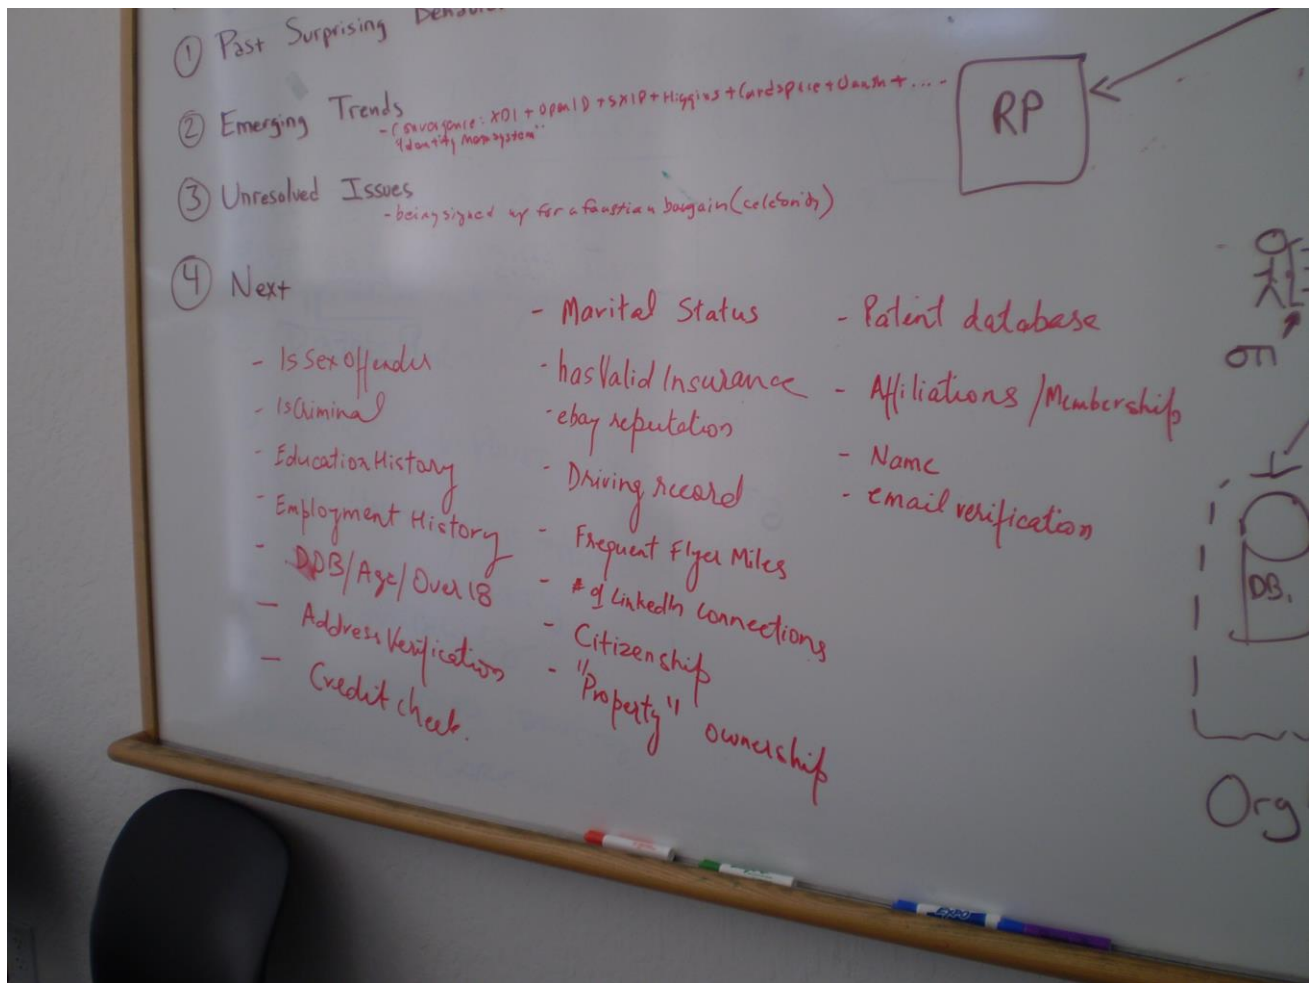 ① Past Surprising
② Emerging Trends
- Convergence: XDI + OpenID + SXIP + Higgins + Cardspace + Oauth + ....
"Identity
③ Unresolved Issues
- being signed up for a faustian bargain (celebrity)
④ Next
- IsSexOffender
- IsCriminal
- Education History
- Employment History
- DOB/Age/Over 18
- Address Verification
- Credit check.
- Marital Status
- hasValid Insurance
- ebay reputation
- Driving record
- Frequent Flyer Miles
- # of LinkedIn Connections
- Citizenship
- "Property" ownership
- Patent database
- Affiliations/Membership
- Name
- email verification
RP
DB.
Org
EXPO